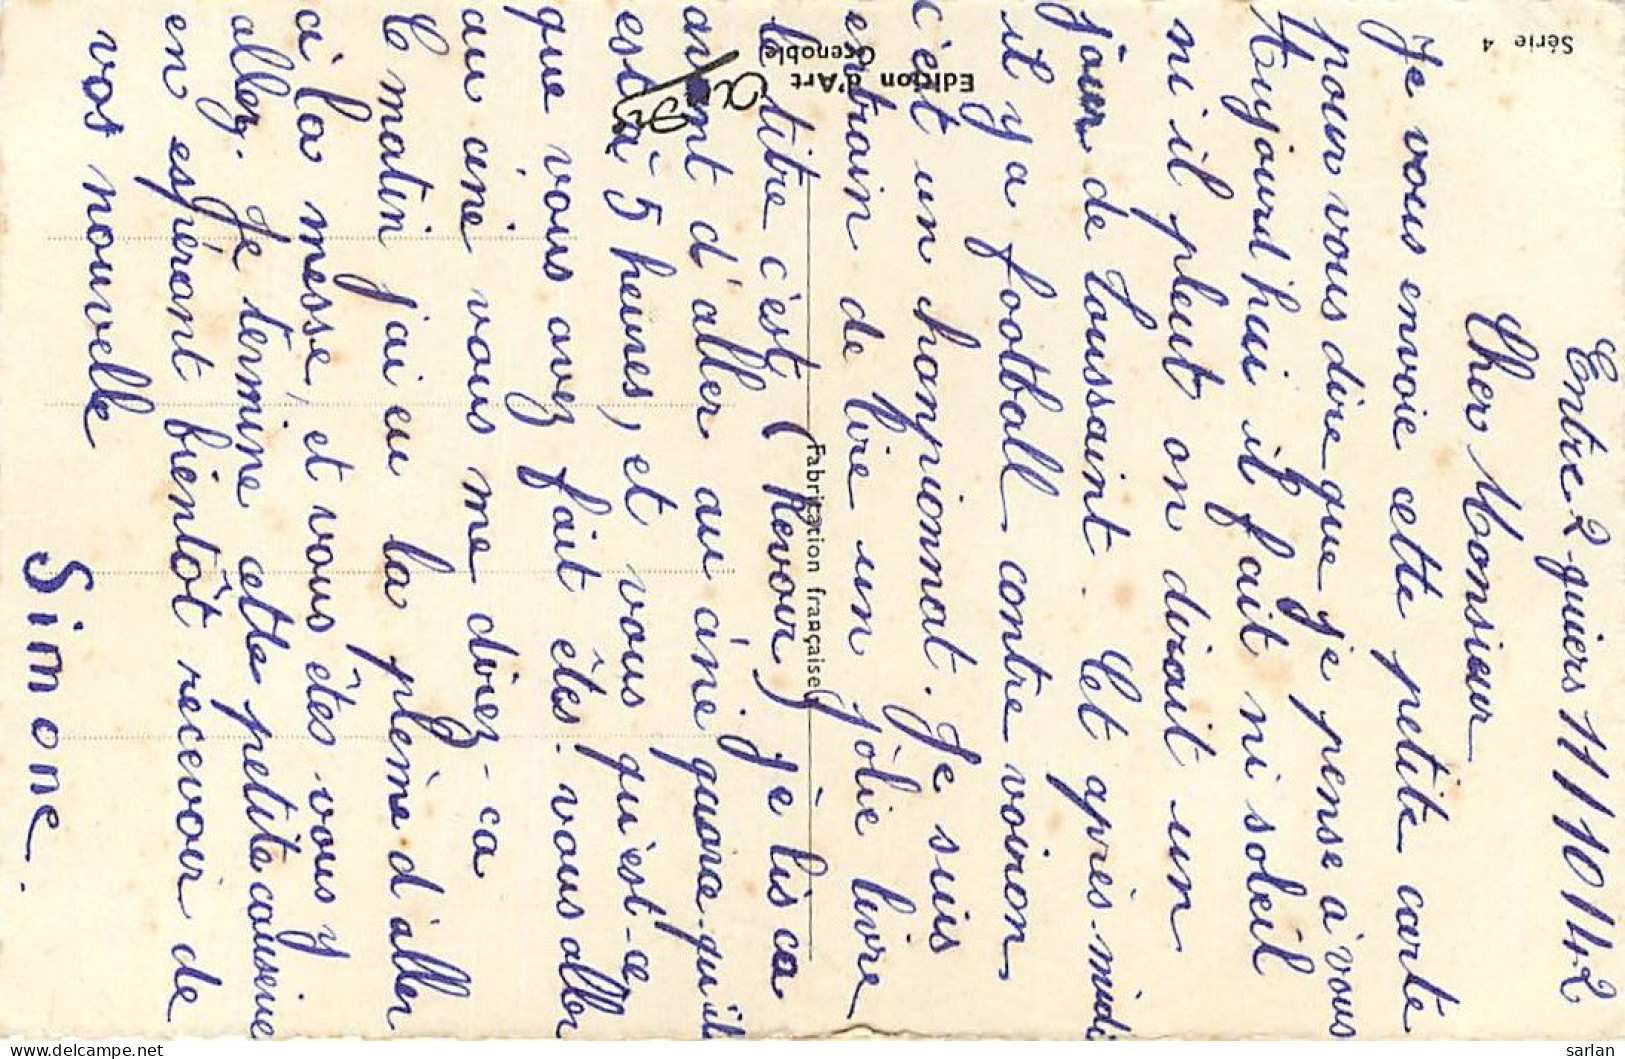 Entre 2 guiers 11/10/42
Cher Monsieur
Je vous envoie cette petite carte
pour vous dire que je pense a' vous
Aujourd'hui il fait ni soleil
ni il pleut on dirait un
jour de Toussaint. Cet après-midi
il y a football contre voiron
c'est un chanpionnat. Je suis
entrain de lire un jolie livre
le titre c'est (Revoir) je lis ca
avant d'aller au ciné guarce-qu'il
est à 5 heures, et vous qu'est-ce
que vous avez fait êtes-vous aller
au ciné vous me direz-ca
C matin j'ai eu la plème d'aller
a' la messe, et vous êtes vous y
aller. Je termine cette petite causerie
en espérant bientôt recevoir de
vos nouvelle
Simone.
Série 4
Edition d'Art
Grenoble
Fabrication française
sarlan